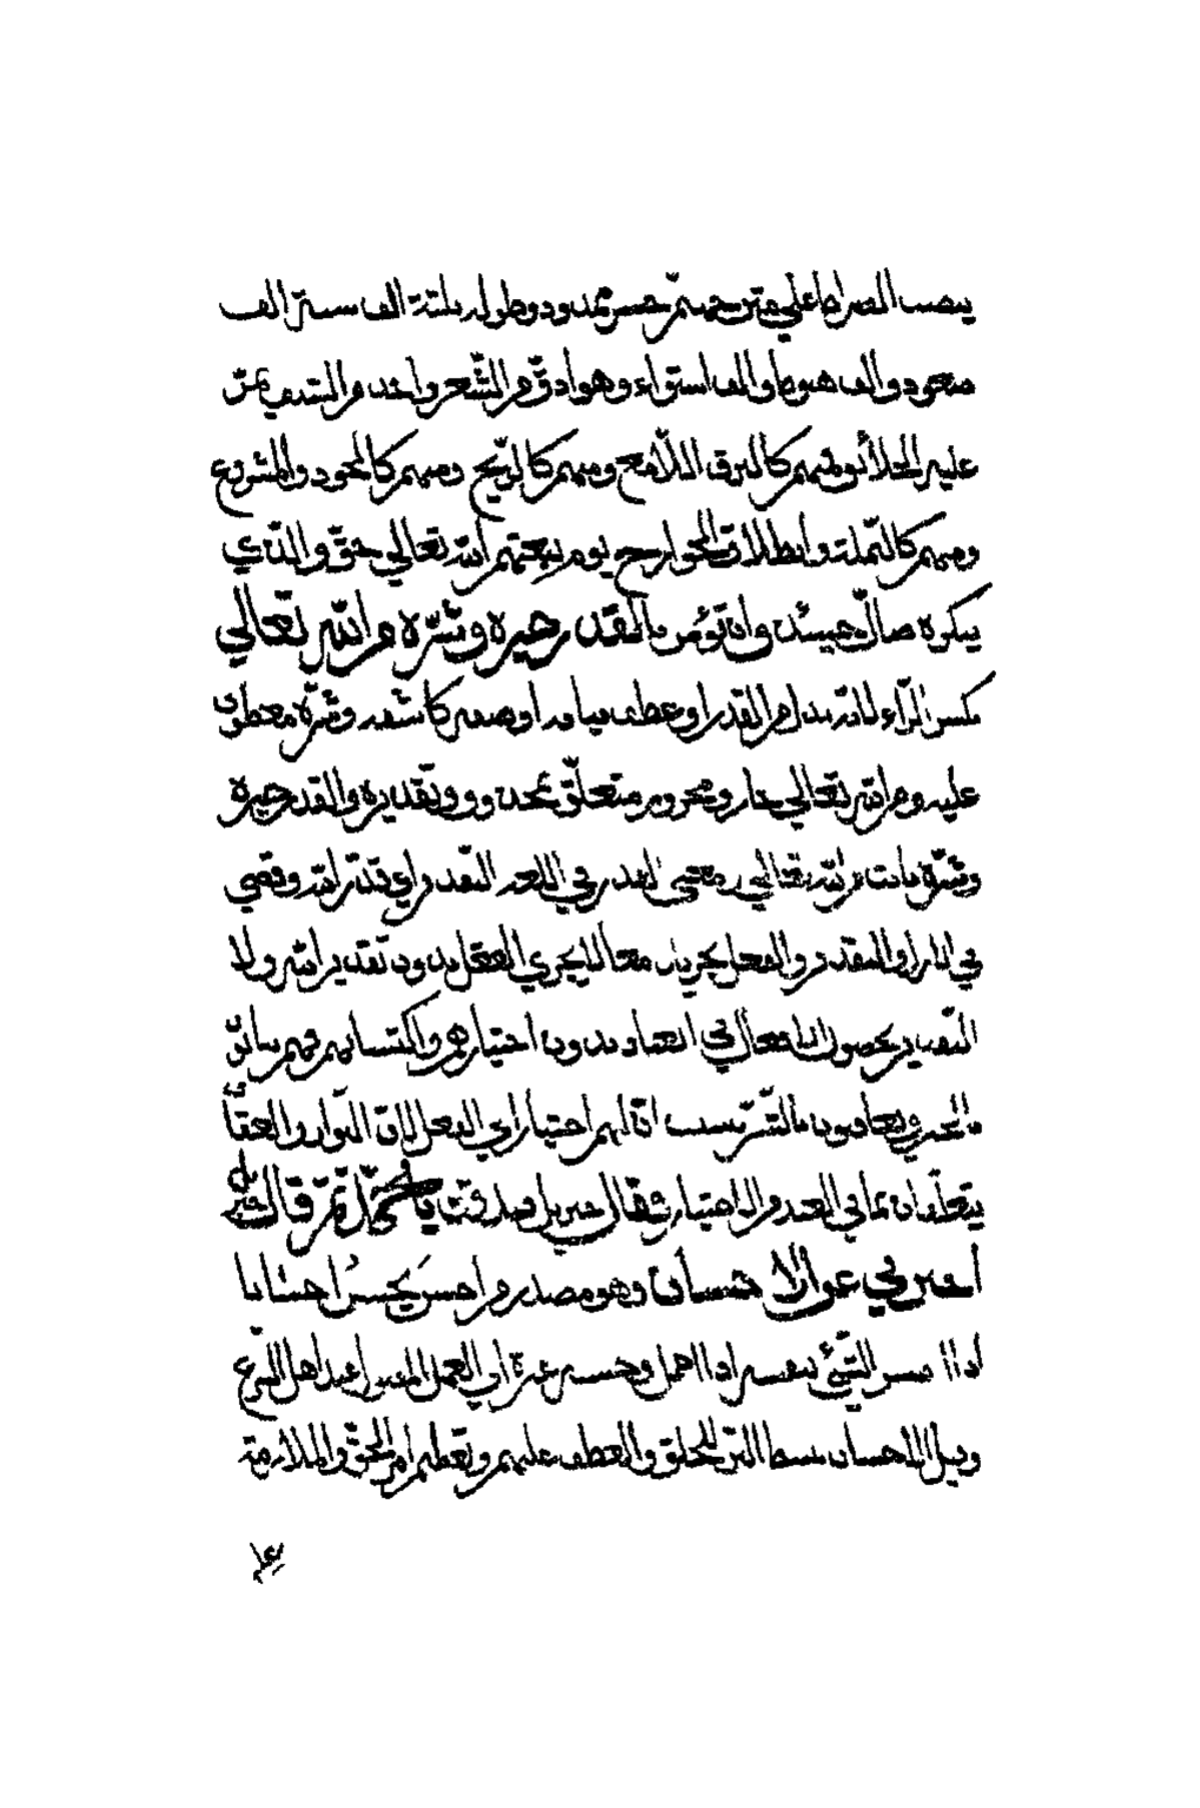 ينصب الصراط على متن جهنّم جسر ممدود وطوله ثلثة الف سنة الف
صعود والف هبوط والف استواء وهو ادقّ من الشّعر واحد من السّيف يمرّ
عليه الخلائق فمنهم كالبرق اللّامع ومنهم كالرّيح ومنهم كالجود والمسرع
ومنهم كالنّملة وانطلاق الجوارح يوم يبعثهم الله تعالي حقّ والذّي
ينكره ضالّ حينئذ وان تؤمن بالقدر خيره وشرّه من الله تعالي
بكسر الرّاء لانّه بدل من القدر او عطف بيان او صفة كاشفة وشرّه معطوف
عليه ومن الله تعالي جار ومجرور متعلّق بمحذوف وتقديره والقدر خيره
وشرّه ثابت من الله تعالي معنى القدر في اللغة التقدير اي قدّر الله وقضي
في الازل والتقدير والفعل يجريان معا لا يجري الفعل بدون تقدير الله ولا
التّقدير بحصول الافعال في العباد بدون اختيارهم واكتسابهم فهم
يعاقبون انّ لهم اختيارا في الفعل لانّ الثّواب والعقاب
يتعلّقان بما في العبد من الاختيار فقال جبريل صدقت يا محمّد ثمّ قال
اخبرني عن الاحسان وهو مصدر من احسن يحسن احسانا
اذا الشّيئ اذا اكمل وحسنه عبارة اي العمل عند اهل الشّرع
وقيل الاحسان بسط البرّ للخلق والعطف عليهم وتعظيم امر الحقّ والملازمة